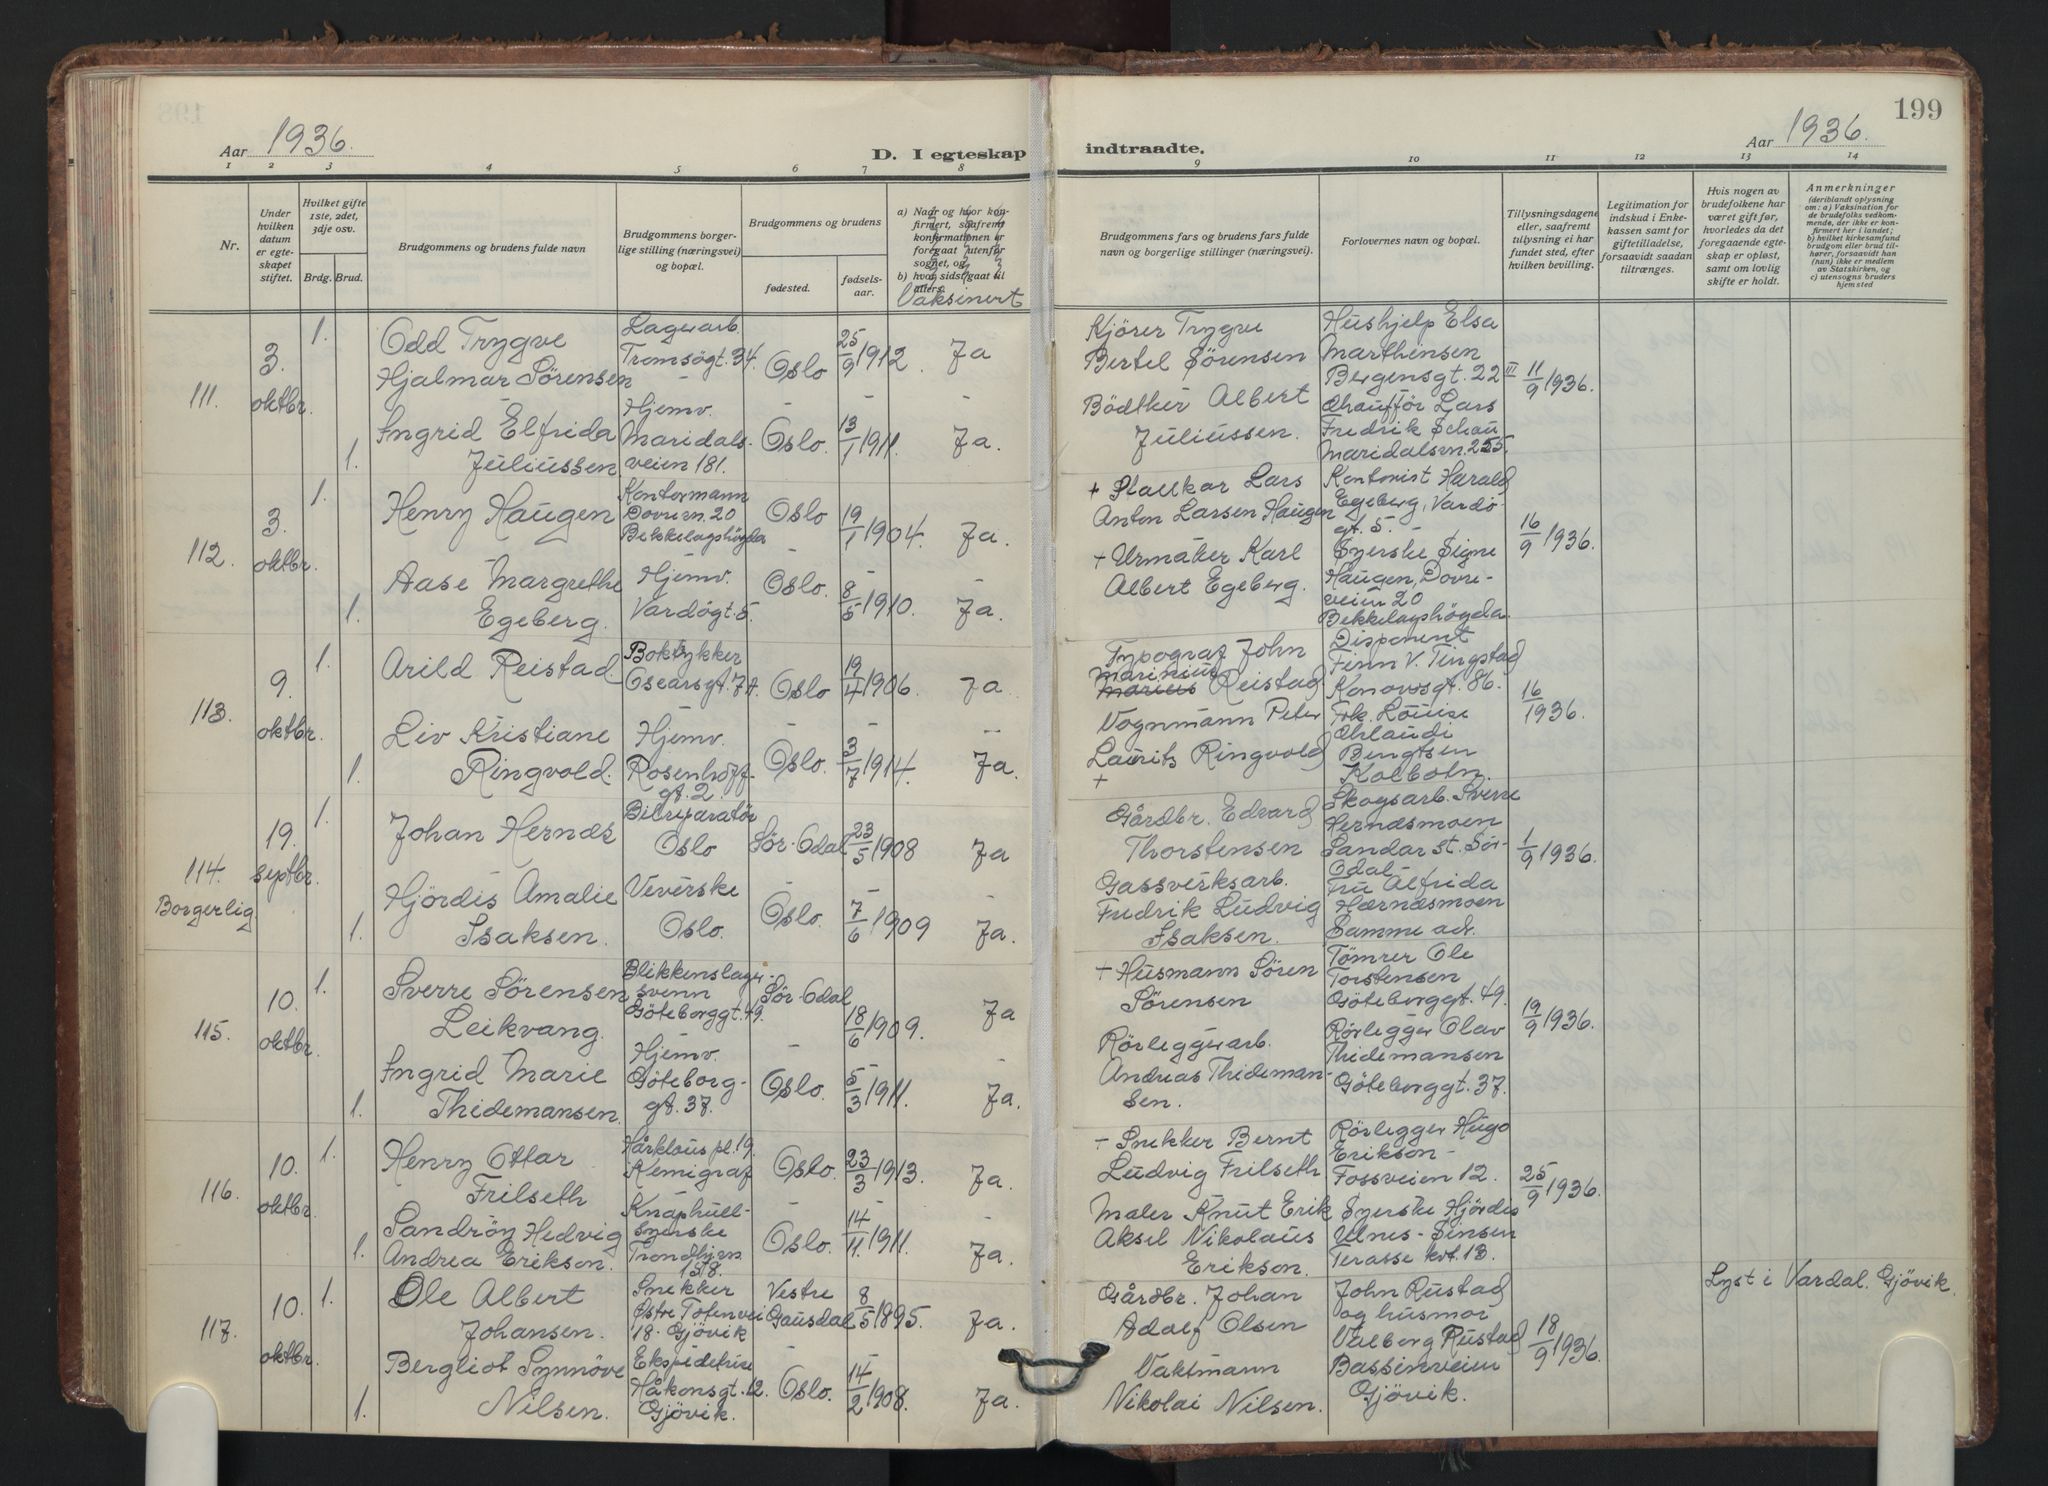 199
Aar 1936.
D. I egteskap
indtraadte.
Aar 1936.
1 2 3 4 5 6 7 8
9 10 11 12 13 14
Nr.
Under hvilken datum er egte-skapet stiftet.
Hvilket gifte 1ste, 2det, 3dje osv.
Brdg. Brud.
Brudgommens og brudens fulde navn
Brudgommens borger-lige stilling (næringsvei) og bopæl.
Brudgommens og brudens
fødested.
fødsels-aar.
a) Naar og hvor kon-firmert, saafremt konfirmationen er foregaat utenfor sognet, og
b) hvor sidst gaat til alters.
Vaksinert
Brudgommens fars og brudens fars fulde navn og borgerlige stillinger (næringsvei).
Forlovernes navn og bopæl.
Tillysningsdagene eller, saafremt tilysning ei har fundet sted, efter hvilken bevilling.
Legitimation for indskud i Enke-kassen samt for giftetilladelse, forsaavidt saadan tiltrænges.
Hvis nogen av brudefolkene har været gift før, hvorledes da det foregaaende egte-skap er opløst, samt om lovlig skifte er holdt.
Anmerkninger
(deriblandt oplysning om: a) Vaksination for de brudefolks vedkom-mende, der ikke er kon-firmert her i landet;
b) hvilket kirkesamfund brudgom eller brud til-hører, forsaavidt han (hun) ikke er medlem av Statskirken, og
c) utensogns bruders hjemsted
111. 3. oktbr.
1.
Odd Trygve
Hjalmar Sörensen
Lagerarb.
Tromsögt. 34.
Oslo
25/9 1912.
Ja
Kjörer Trygve
Bertel Sörensen
Hushjelp Elsa
Marthensen
Bergensgt. 22 III
11/9 1936.
1.
Ingrid Elfrida
Juliussen
Hjemv.
Maridals-
veien 181.
Oslo.
13/1 1911.
Ja.
Bödtker Albert
Juliussen.
Chaufför Lars
Fredrik Schau
Maridalsvn. 255.
112. 3. oktbr.
1.
Henry Haugen
Kontormann
Dovrevn. 20
Bekkelagshögda
Oslo
19/1 1904.
Ja.
+ Stallkar Lars
Anton Larsen Haugen
Kontorist Harald
Egeberg, Vardö-
gt. 5. -
16/9 1936.
1.
Aase Margrethe
Egeberg.
Hjemv.
Vardögt. 5.
Oslo.
8/5 1910.
Ja.
+ Urmaker Karl
Albert Egeberg.
Syerske Signe
Haugen, Dovre-
veien 20
Bekkelagshögda
113. 9. oktbr.
1.
Arild Reistad.
Boktrykker
Oscarsgt. 74.
Oslo
19/4 1906.
Ja
Typograf John
Marinius
Marius Reistad
Disponent
Finn V. Tingstad
Konowsgt. 86.
16/ 1936.
1.
Liv Kristiane
Ringvold.
Hjemv.
Rosenhoff-
gt. 2.
Oslo.
3/7 1914.
Ja.
Vognmann Peter
Laurits Ringvold
+
Frk. Louise
Chlaudi
Bengtsen
Kolbotn.
114. Borgerlig
19. septbr.
1.
Johan Hernæs
Bilreparatör
Oslo
Sör-Odal
23/5 1908
Ja
Gårdbr. Edvard
Thorstensen
Skogsarb. Sverre
Hernæsmoen
Sandar st. Sör-
Odal -
1/9 1936.
1.
Hjördis Amalie
Isaksen.
Veverske
Oslo.
Oslo.
7/6 1909
Ja.
Gassverksarb.
Fredrik Ludvig
Isaksen.
Fru Alfrida
Hærnæsmoen
Samme adr.
115. 10. oktbr.
1.
Sverre Sörensen
Leikvang.
Blikkenslager-
svenn
Göteborggt. 49.
Sör-Odal
18/6 1909.
Ja
+ Husmann Sören
Sörensen
Tömrer Ole
Torstensen
Göteborggt. 49.
19/9 1936.
1.
Ingrid Marie
Thidemansen.
Hjemv.
Göteborg-
gt. 37.
Oslo.
5/3 1911.
Ja.
Rörleggerarb.
Andreas Thideman-
sen.
Rörlegger Olav
Thidemansen
Göteborggt. 37.
116. 10. oktbr.
1.
Henry Ottar
Frilseth
Hårklous pl. 19.
Kemigraf
Oslo.
23/3 1913.
Ja.
+ Snekker Bernt
Ludvig Frilseth
Rörlegger Hugo
Erikson -
Fossveien 12.
25/9 1936.
1.
Sandröy Hedvig
Andrea Erikson.
Knaphull-
syerske
Trondhjem
Oslo.
14/11 1911.
Ja.
Maler Knut Erik
Aksel Nikolaus
Erikson.
Syerske Hjördis
Ulnes - Sinsen
Terasse kvt. 13.
117. 10. oktbr.
1.
Ole Albert
Johansen.
Snekker
Östre Totenvei
18. Gjövik
Vestre
Gausdal
8/5 1895.
Ja.
Gårdbr. Johan
Adolf Olsen
John Rustad
og husmor
Valborg Rustad
Bassinveien
Gjövik.
18/9 1936.
Lyst i Vardal. Gjövik.
1.
Bergliot Synnöve
Nilsen.
Ekspeditrise
Håkonsgt. 12.
Gjövik.
Oslo.
14/2 1908.
Ja.
Vaktmann
Nikolai Nilsen.